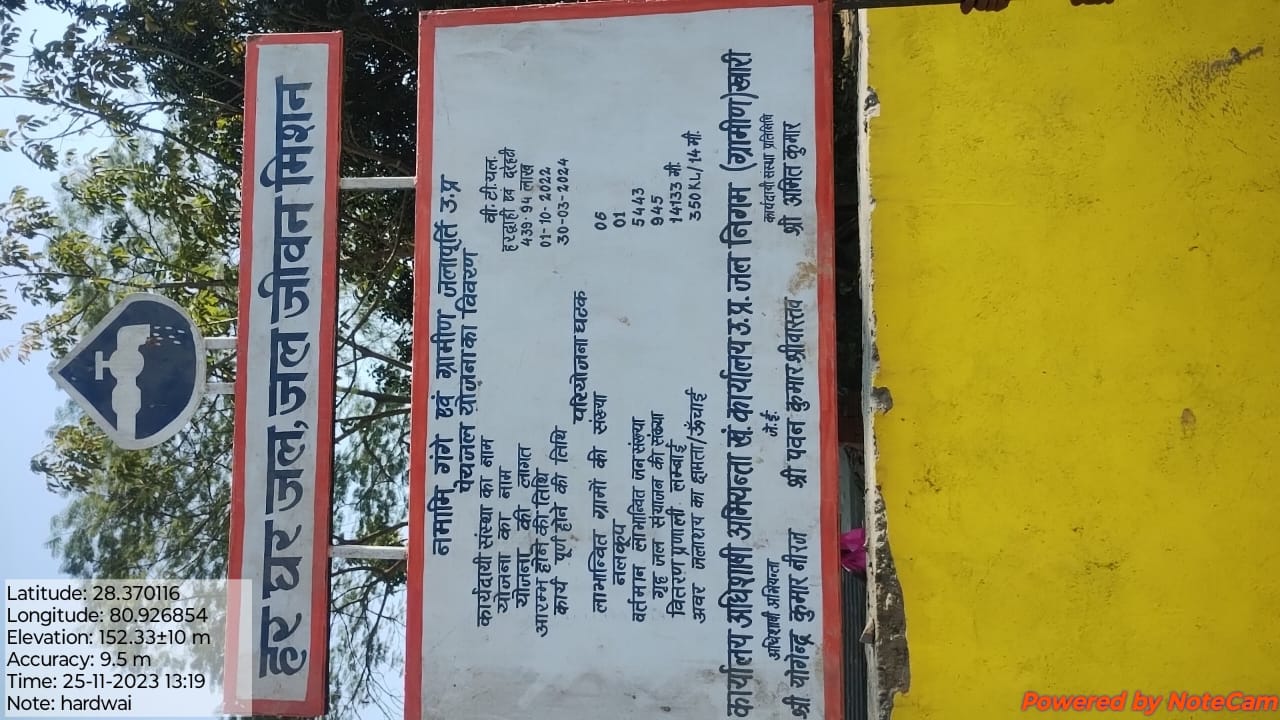 हर घर जल, जल जीवन मिशन
नमामि गंगे एवं ग्रामीण जलापूर्ति उ.प्र
पेयजल योजना का विवरण
कार्यदायी संस्था का नाम वी.टी.एल.
योजना का नाम हरद्वाही एवं दरेहटी
योजना की लागत 439.94 लाख
आरम्भ होने की तिथि 01-10-2022
कार्य पूर्ण होने की तिथि 30-03-2024
परियोजना घटक
लाभान्वित ग्रामों की संख्या 06
नलकूप 01
वर्तमान लाभान्वित जनसंख्या 5443
गृह जल संयोजन की संख्या 945
वितरण प्रणाली लम्बाई 14133 मी.
अवर जलाशय का क्षमता/ऊँचाई 350 KL/14 मी.
कार्यालय अधिशाषी अभियन्ता खं. कार्यालय उ.प्र. जल निगम (ग्रामीण) खीरी
अधिशाषी अभियन्ता जे.ई. कार्यदायी संस्था प्रतिनिधि
श्री योगेन्द्र कुमार नीरज श्री पवन कुमार श्रीवास्तव श्री अमित कुमार
Latitude: 28.370116
Longitude: 80.926854
Elevation: 152.33±10 m
Accuracy: 9.5 m
Time: 25-11-2023 13:19
Note: hardwai
Powered by NoteCam